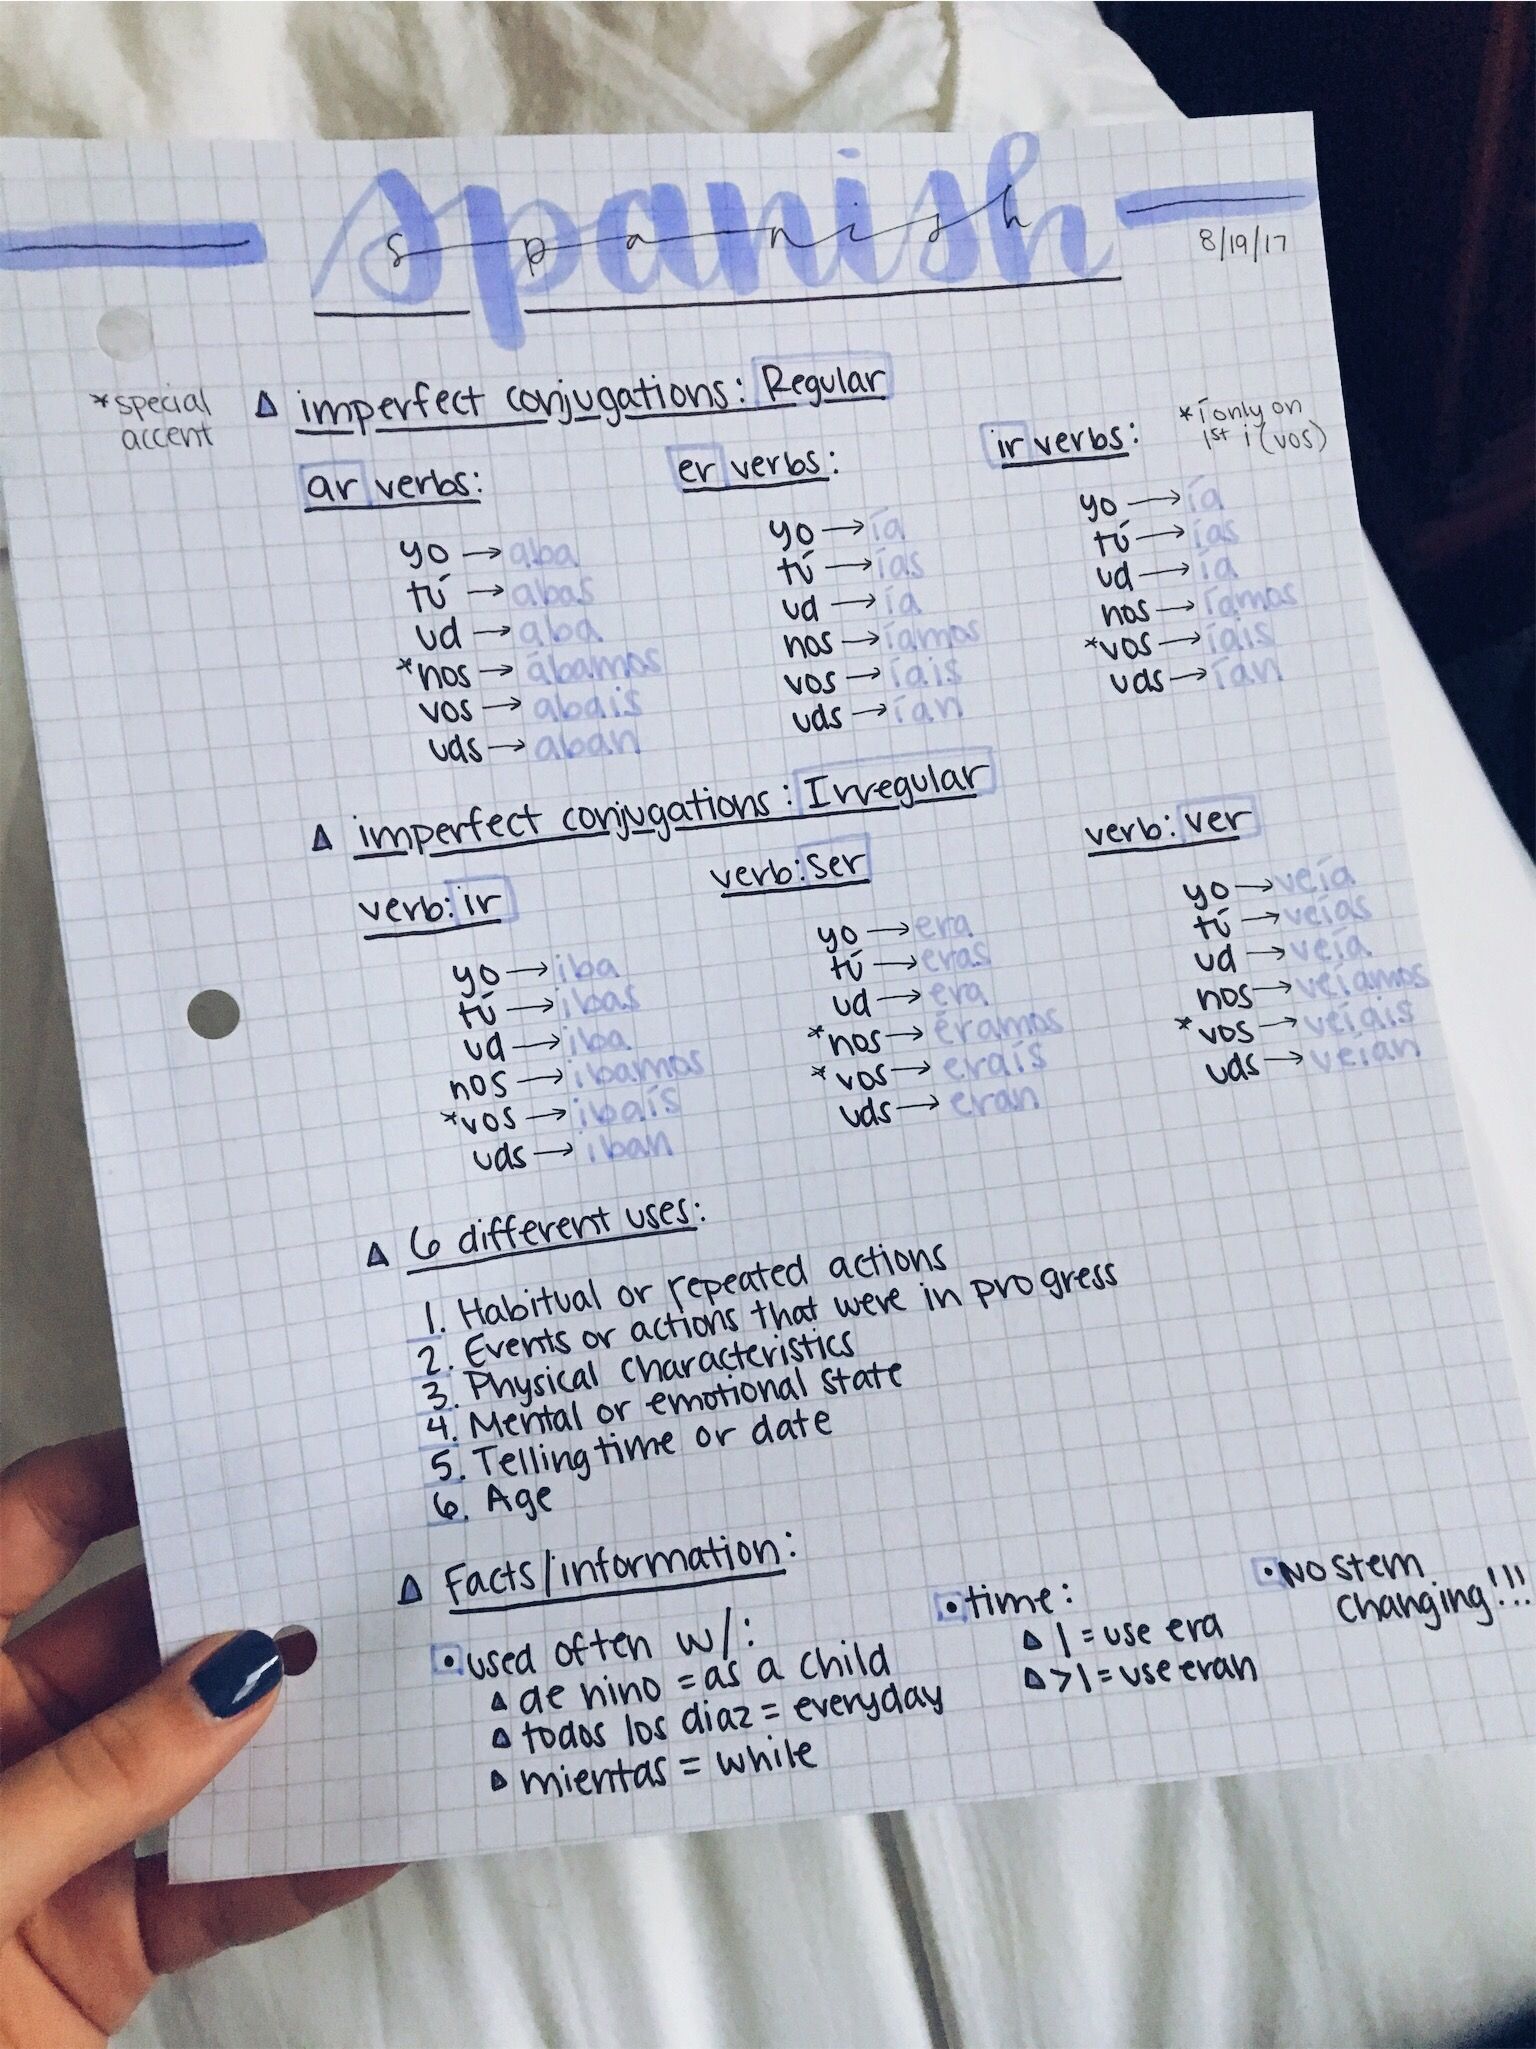 spanish
spanish
8/19/17
*special
accent
imperfect conjugations: Regular
*í only on
1st i (vos)
ar verbs:
yo → aba
tú → abas
ud → aba
*nos → ábamos
vos → abais
uds → aban
er verbs:
yo → ía
tú → ías
ud → ía
nos → íamos
vos → íais
uds → ían
ir verbs:
yo → ía
tú → ías
ud → ía
nos → íamos
*vos → íais
uds → ían
imperfect conjugations: Irregular
verb: ir
yo → iba
tú → ibas
ud → iba
nos → ibamos
*vos → ibaís
uds → iban
verb: ser
yo → era
tú → eras
ud → era
*nos → éramos
*vos → eraís
uds → eran
verb: ver
yo → veía
tú → veías
ud → veía
nos → veíamos
*vos → veíais
uds → veían
6 different uses:
1. Habitual or repeated actions
2. Events or actions that were in progress
3. Physical characteristics
4. Mental or emotional state
5. Telling time or date
6. Age
Facts/information:
• used often w/:
de nino = as a child
todos los diaz = everyday
mientas = while
• time:
1 = use era
>1 = use eran
• No stem
changing!!!